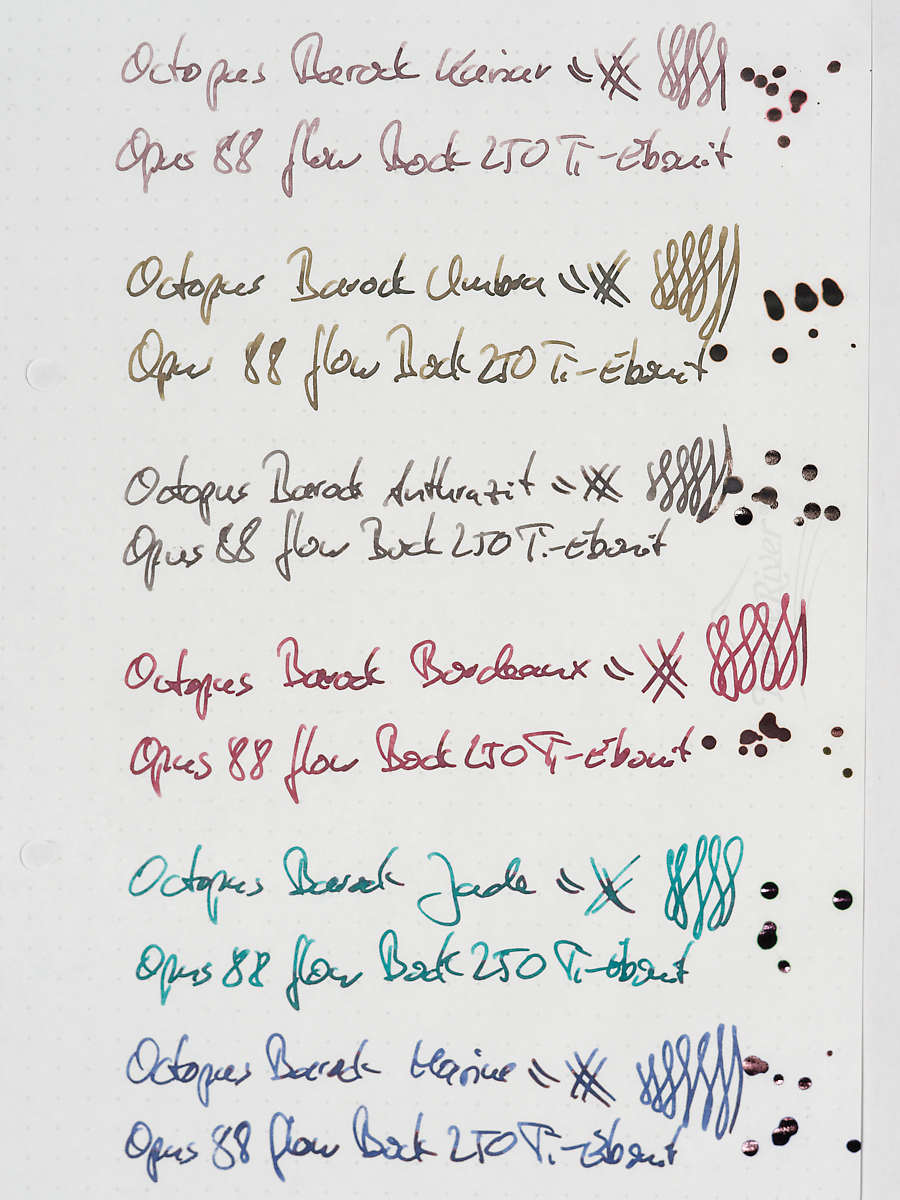 Octopus Barock Kaviar =
Opus 88 flow Bock 250 Ti-Ebonit
Octopus Barock Umbra =
Opus 88 flow Bock 250 Ti-Ebonit
Octopus Barock Anthrazit =
Opus 88 flow Bock 250 Ti-Ebonit
River
Octopus Barock Bordeaux =
Opus 88 flow Bock 250 Ti-Ebonit
Octopus Barock Jade =
Opus 88 flow Bock 250 Ti-Ebonit
Octopus Barock Marine =
Opus 88 flow Bock 250 Ti-Ebonit